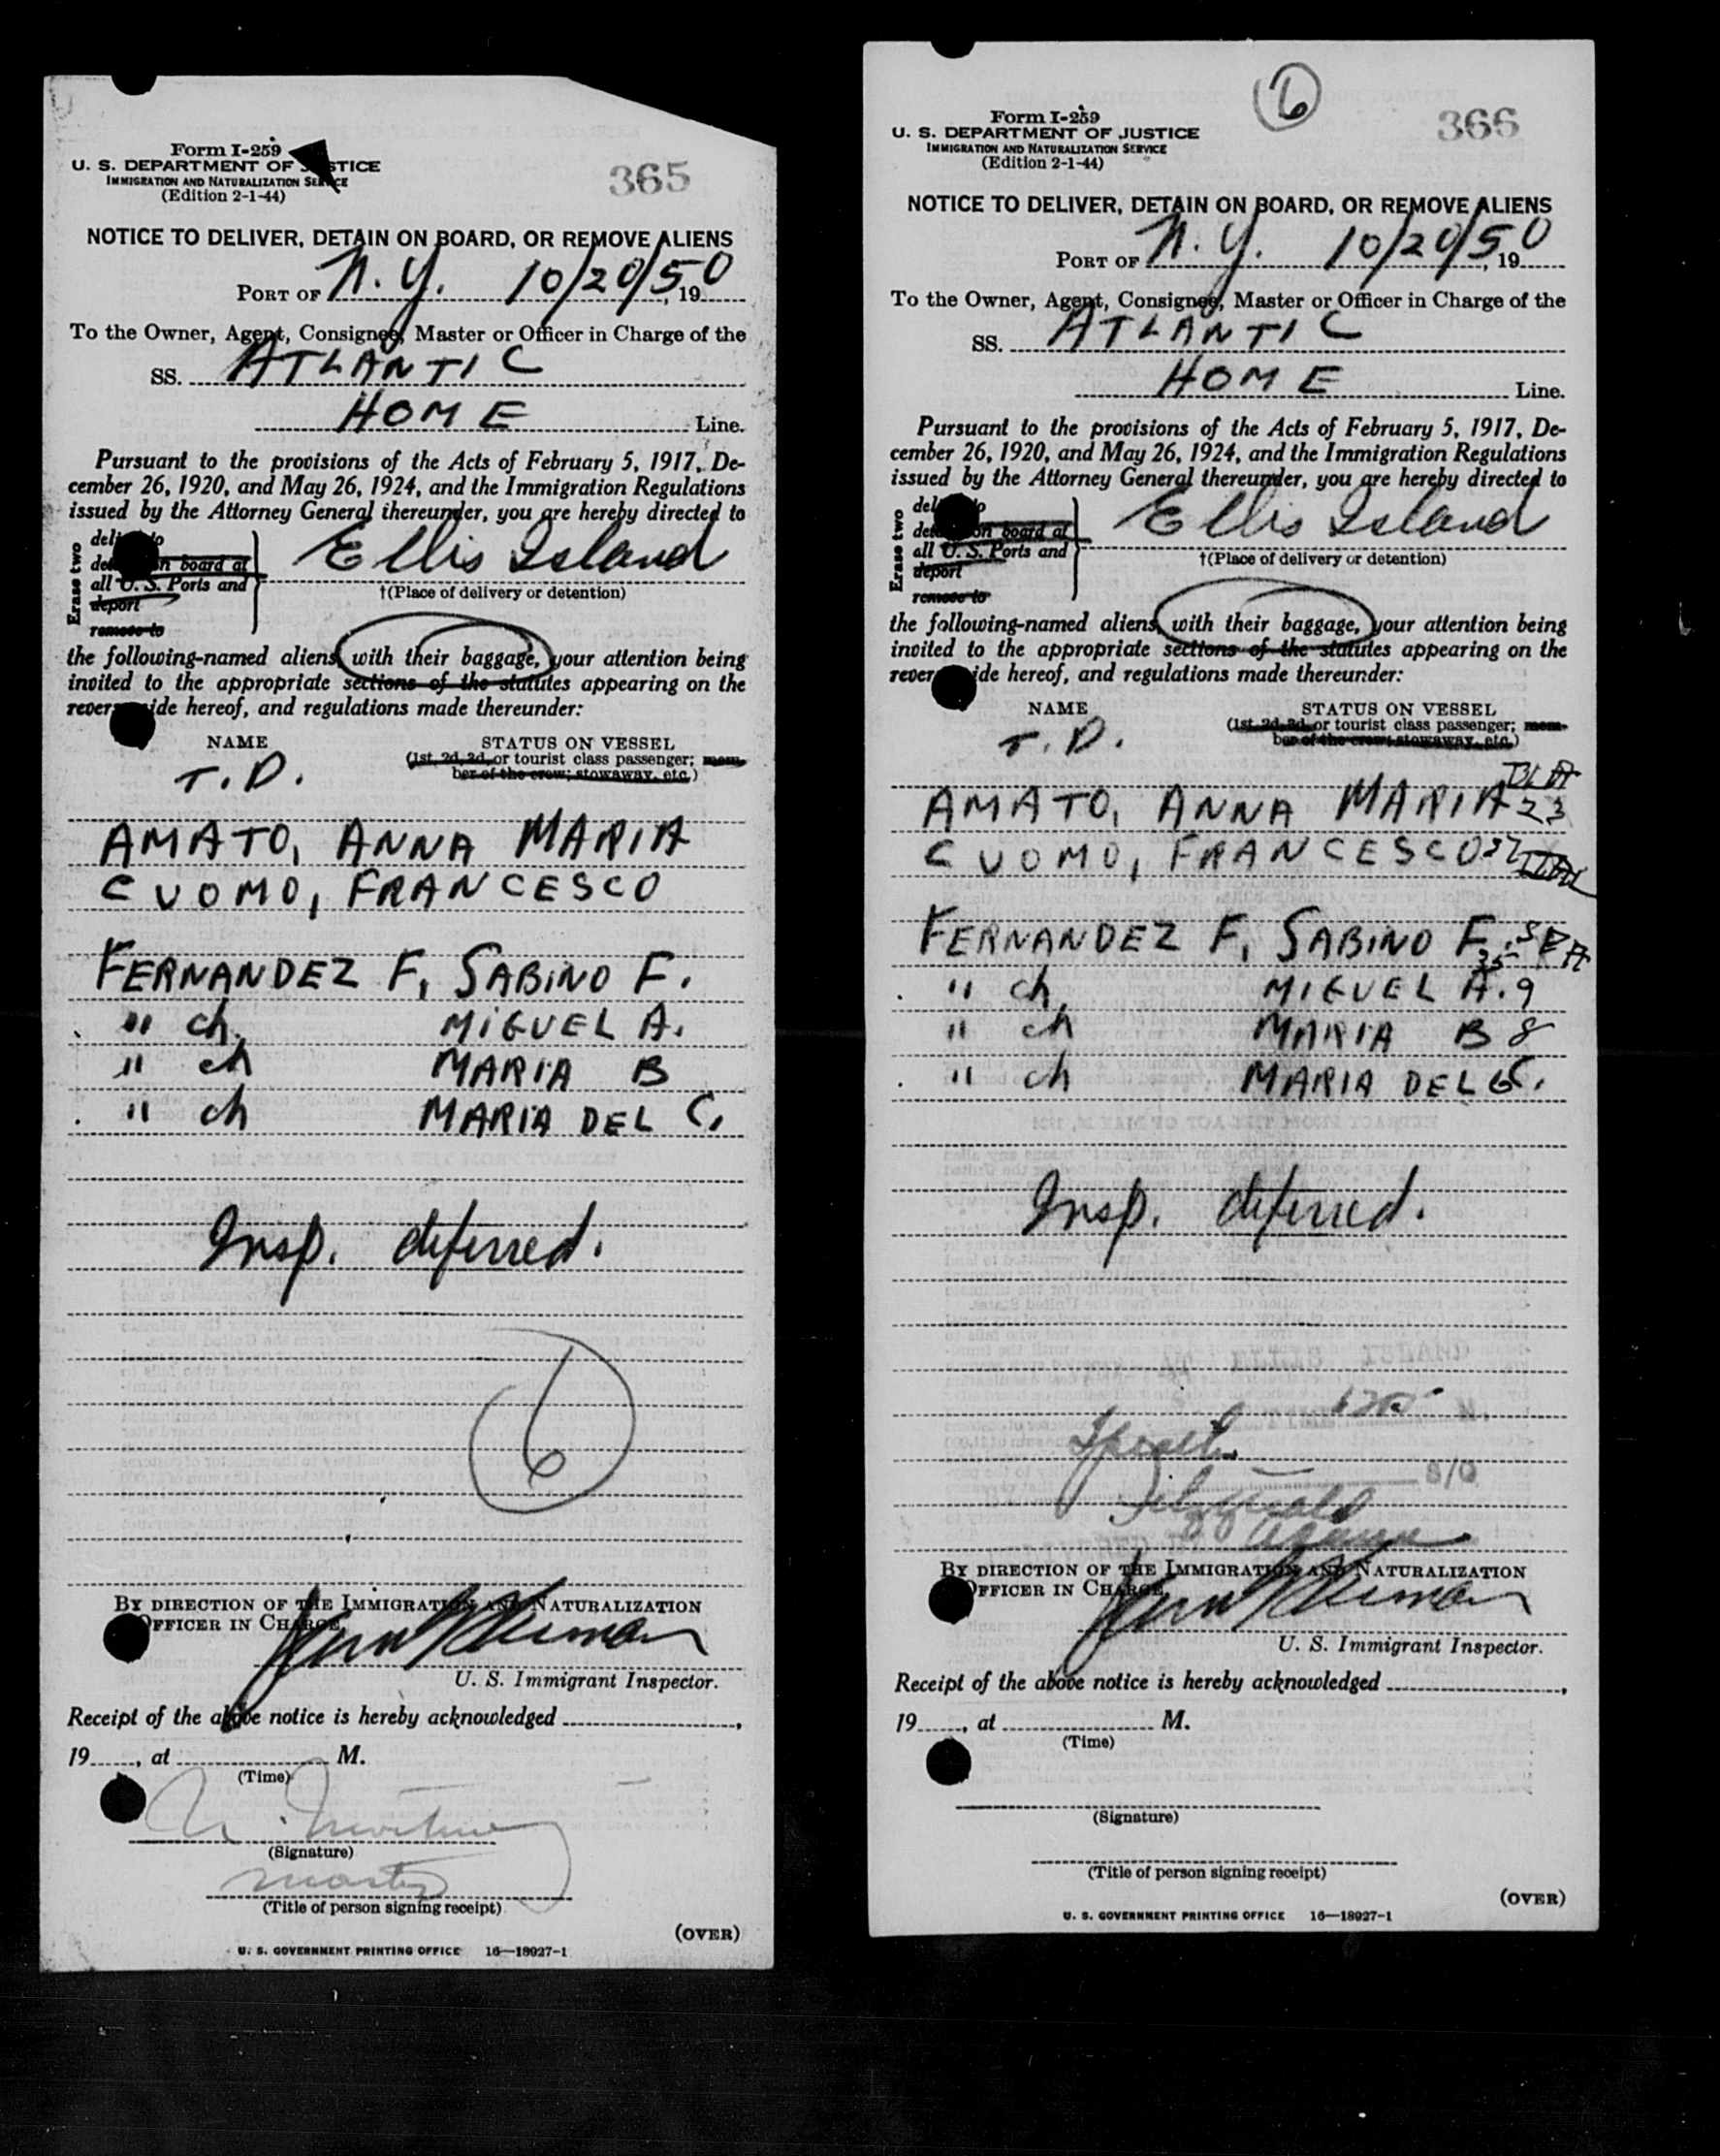 Form I-259
U. S. DEPARTMENT OF JUSTICE
IMMIGRATION AND NATURALIZATION SERVICE
(Edition 2-1-44)
365
NOTICE TO DELIVER, DETAIN ON BOARD, OR REMOVE ALIENS
PORT OF N. Y. 10/20/50, 19
To the Owner, Agent, Consignee, Master or Officer in Charge of the
SS. ATLANTIC
HOME Line.
Pursuant to the provisions of the Acts of February 5, 1917, De-
cember 26, 1920, and May 26, 1924, and the Immigration Regulations
issued by the Attorney General thereunder, you are hereby directed to
Erase two
deli to
de n board at
all U. S. Ports and
deport
remove to
Ellis Island
†(Place of delivery or detention)
the following-named aliens, with their baggage, your attention being
invited to the appropriate sections of the statutes appearing on the
rever ide hereof, and regulations made thereunder:
NAME
STATUS ON VESSEL
(1st, 2d, 3d, or tourist class passenger; mem-
ber of the crew; stowaway, etc.)
T.D.
AMATO, ANNA MARIA
CUOMO, FRANCESCO
FERNANDEZ F, SABINO F.
" ch. MIGUEL A.
" ch MARIA B
" ch MARIA DEL C.
Insp. deferred.
6
BY DIRECTION OF THE IMMIGRATION AND NATURALIZATION
OFFICER IN CHARGE,
U. S. Immigrant Inspector.
Receipt of the above notice is hereby acknowledged ,
19 , at M.
(Time)
(Signature)
Master
(Title of person signing receipt)
(OVER)
U. S. GOVERNMENT PRINTING OFFICE 16—18927-1
6
Form I-259
U. S. DEPARTMENT OF JUSTICE
IMMIGRATION AND NATURALIZATION SERVICE
(Edition 2-1-44)
366
NOTICE TO DELIVER, DETAIN ON BOARD, OR REMOVE ALIENS
PORT OF N. Y. 10/20/50, 19
To the Owner, Agent, Consignee, Master or Officer in Charge of the
SS. ATLANTIC
HOME Line.
Pursuant to the provisions of the Acts of February 5, 1917, De-
cember 26, 1920, and May 26, 1924, and the Immigration Regulations
issued by the Attorney General thereunder, you are hereby directed to
Erase two
del o
de on board at
all U. S. Ports and
deport
remove to
Ellis Island
†(Place of delivery or detention)
the following-named aliens, with their baggage, your attention being
invited to the appropriate sections of the statutes appearing on the
rever ide hereof, and regulations made thereunder:
NAME
STATUS ON VESSEL
(1st, 2d, 3d, or tourist class passenger; mem-
ber of the crew; stowaway, etc.)
T.D.
AMATO, ANNA MARIA 23
CUOMO, FRANCESCO
FERNANDEZ F, SABINO F. 35 SPA
" ch, MIGUEL A. 9
" ch MARIA B 8
" ch MARIA DEL C. 6
Insp. deferred.
Fitzgerald
BY DIRECTION OF THE IMMIGRATION AND NATURALIZATION
OFFICER IN CHARGE,
U. S. Immigrant Inspector.
Receipt of the above notice is hereby acknowledged ,
19 , at M.
(Time)
(Signature)
(Title of person signing receipt)
(OVER)
U. S. GOVERNMENT PRINTING OFFICE 16—18927-1